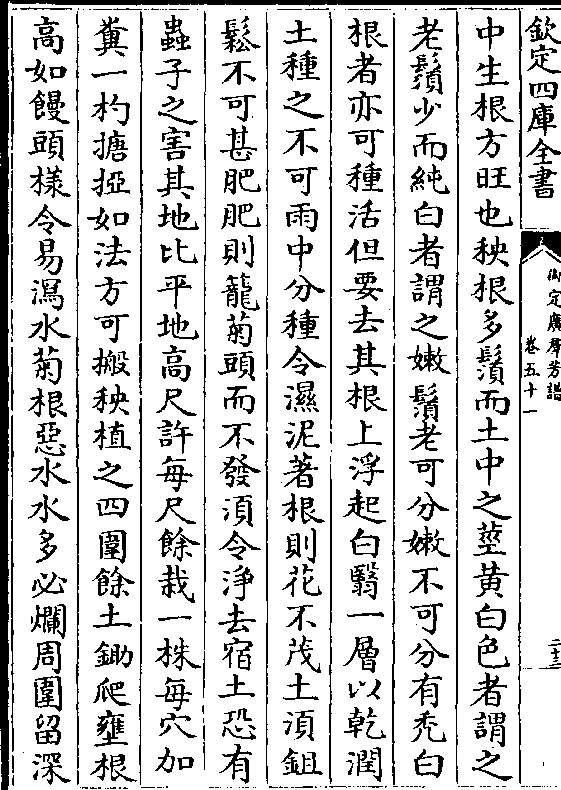 欽定四庫全書
御定廣羣芳譜
卷五十一
二十三
中生根方旺也秧根多鬚而土中之莖黃白色者謂之
老鬚少而純白者謂之嫩鬚老可分嫩不可分有禿白
根者亦可種活但要去其根上浮起白翳一層以乾潤
土種之不可雨中分種令濕泥著根則花不茂土須鉏
鬆不可甚肥肥則籠菊頭而不發須令淨去宿土恐有
蟲子之害其地比平地高尺許每尺餘栽一株每穴加
糞一杓搪挜如法方可搬秧植之四圍餘土鋤爬壅根
高如饅頭樣令易瀉水菊根惡水水多必爛周圍留深